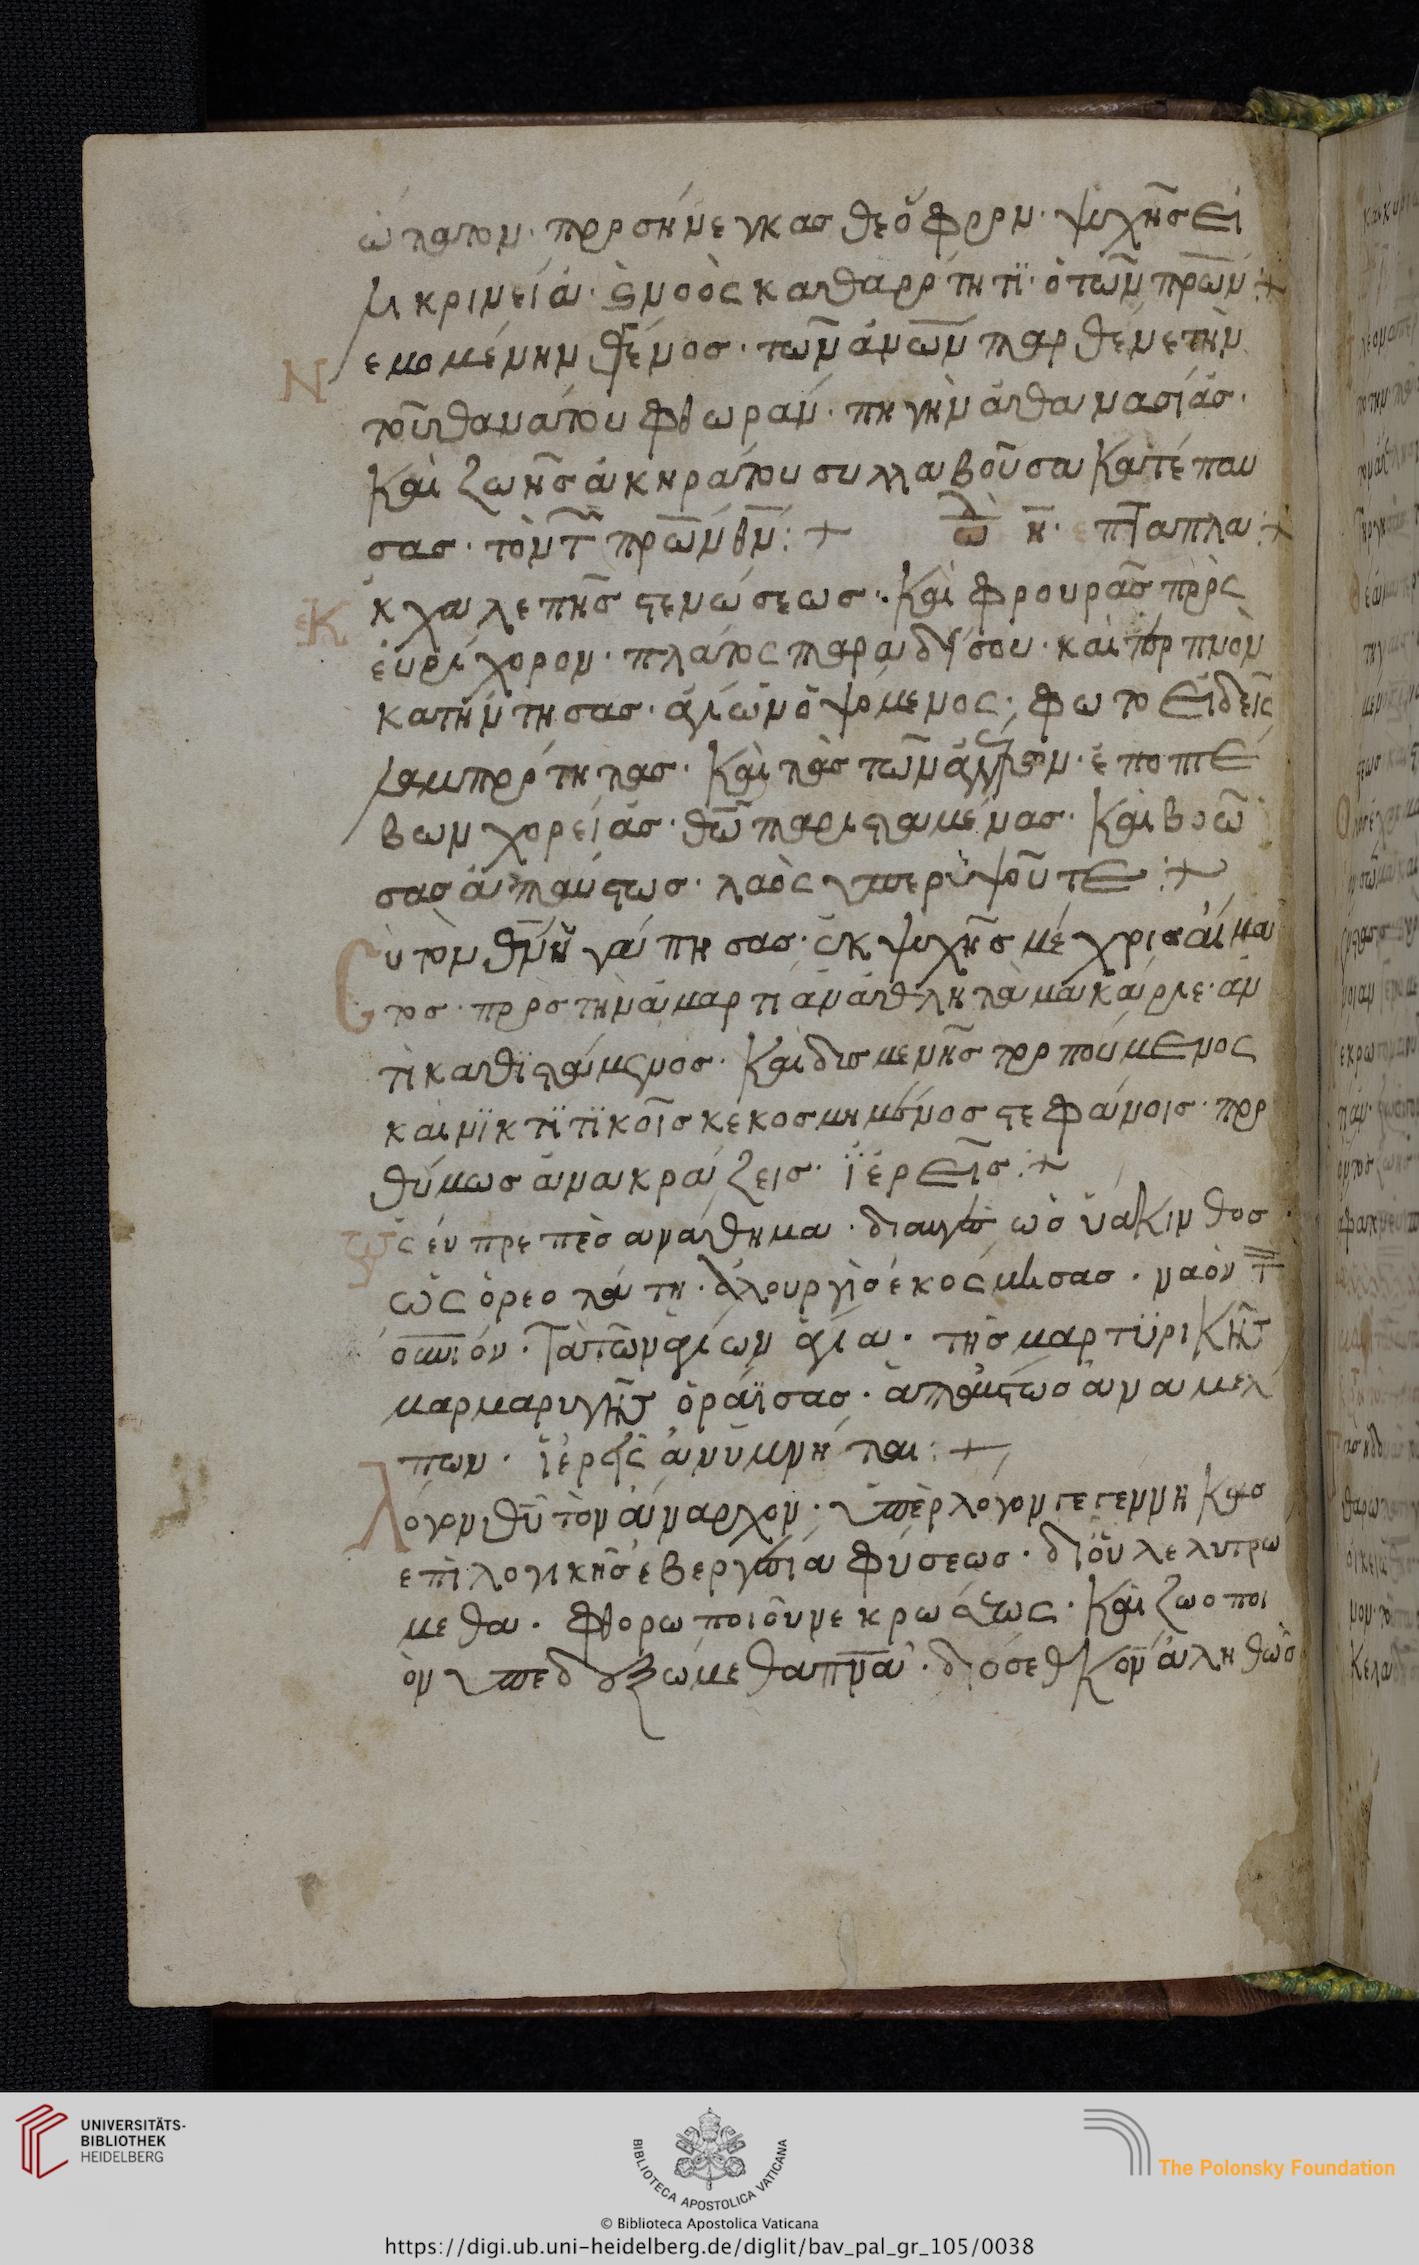 ώτατον· προσήνεγκας θεόφρον· ψυχῆς εἰ
λικρινεία· ς νοὸς καθαρότητι· ὁ τῶν πρῶν :+
Νενομένην θένος· τῶν ἀνῶν παρθένε τὴν
τοῦ θανάτου φθωράν· πηγὴν ἀθανασίας·
Καὶ ζωῆς ἀκηράτου συλλαβοῦσα κατέπαυ
σας· τὸν τ πρῶν θν :+ ὠδὴ η· επταπλα :+
ἐΚ κ χαλεπῆς στενώσεως· καὶ φρουρᾶς πρὸς
εὐρύχορον· πλάτος παραδίσου· καὶ τερπνὸν
κατήντησας· ἁγίων ὀψόμενος· φωτοειδεῖς
λαμπρότητας· Καὶ τὰς τῶν ἀγγέλων· ἐποπτε
βων χορείας· θῶ παρισταμένας· Καὶ βοῶ
σας ἀπαύστως· λαὸς ὑπερυψοῦτε :+
Cὺ τὸν θν ἠγάπησας· ἐκ ψυχῆς μέχρις αἵμα
τος· πρὸς τὴν ἁμαρτίαν ἀθλητὰ μακάριε· ἀν
τικαθιστάμενος· Καὶ δισμενῆς τροπούμενος
καὶ νικτιτικοῖς κεκοσμημένος στεφάνοις· προ
θύμως ἅμα κράζεις· ἱερεῖς :+
ὡς ἐν πρεπὲς ανάθημα· διαυγὼ ωὁ ὑάκινθος
ὡς ὁρεοτάτη· ἁλουργὶς ἐκόσμησας· ναὸν τ
οὐνιόν· Τὰ τῶν ἁγίων ἅγια· τῆς μαρτυρικῆς
μαρμαρυγῆς ὁράϊσας· ἀπαύστως ἀναμελ
πων· ἱερεῖς ἀνυμνήται :+
Λόγον θῦ τὸν ἄναρχον· ὑπὲρ λόγον γεγέννηκας
επὶ λογικῆς ἐβεργεσία φύσεως· δι οὗ λελυτρω
μεθα· φθορωποιοῦ νεκρωσέως· Καὶ ζωοποι
ὸν ὑπεδεξώμεθα πνα· διό σε θκον ἀληθῶς
UNIVERSITÄTS-
BIBLIOTHEK
HEIDELBERG
BIBLIOTECA APOSTOLICA VATICANA
The Polonsky Foundation
© Biblioteca Apostolica Vaticana
https://digi.ub.uni-heidelberg.de/diglit/bav_pal_gr_105/0038